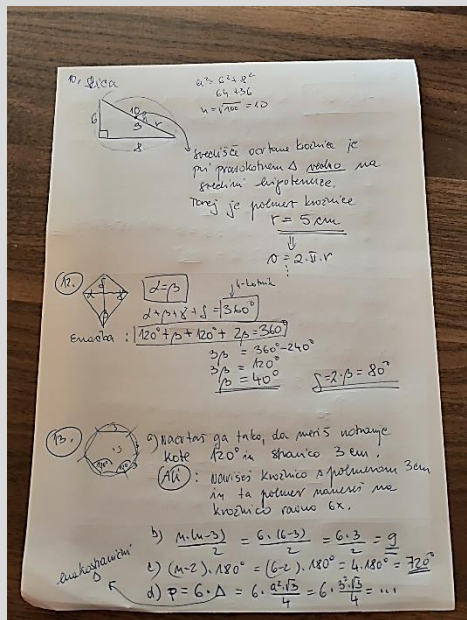 10. skica
6² + 8²
64 + 36
= √100 = 10
6
10
r
8
središče očrtane krožnice je
pri pravokotnem Δ vedno na
sredini hipotenuze.
Torej je polmer krožnice
r = 5 cm
⇓
o = 2·π·r
⋮
12.
α = β
4-kotnik
α + β + γ + δ = 360°
Enačba: 120° + β + 120° + 2β = 360°
3β = 360° - 240°
3β = 120°
β = 40°
δ = 2·β = 80°
13.
a) Načrtaš ga tako, da meriš notranje
kote 120° in stranico 3 cm.
Ali: Narišeš krožnico s polmerom 3cm
in ta polmer naneseš na
krožnico ravno 6x.
b) n·(n-3)/2 = 6·(6-3)/2 = 6·3/2 = 9
c) (n-2)·180° = (6-2)·180° = 4·180° = 720°
enakostranični
d) P = 6·Δ = 6·a²·√3/4 = 6·3²·√3/4 = ...